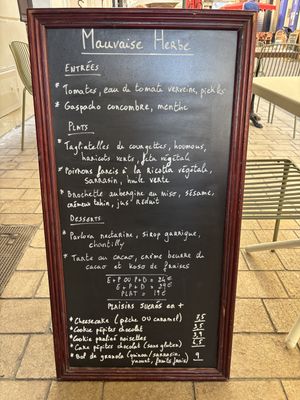 Mauvaise Herbe
ENTRÉES
* Tomates, eau de tomate verveine, pickles
* Gaspacho concombre, menthe
PLATS
* Tagliatelles de courgettes, houmous,
haricots verts, feta végétal
* Poivrons farcis à la ricotta végétale,
Sarrasin, huile verte
* Brochette aubergine au miso, sésame,
crémeux tahin, jus réduit
DESSERTS
* Pavlova nectarine, sirop garrigue,
chantilly
* Tarte au cacao, crème beurre de
cacao et koso de fraises
E+P OU P+D = 24€
E+P+D = 29€
PLAT = 19€
PLAISIRS SUCRÉS EN +
* Cheesecake (pêche OU caramel) 7,5
* Cookie pépites chocolat 3,5
* Cookie praliné noisettes
* Cake pépites chocolat (sans gluten)
* Bol de granola (quinoa/sarrasin, 9
yaourt, fruits frais)